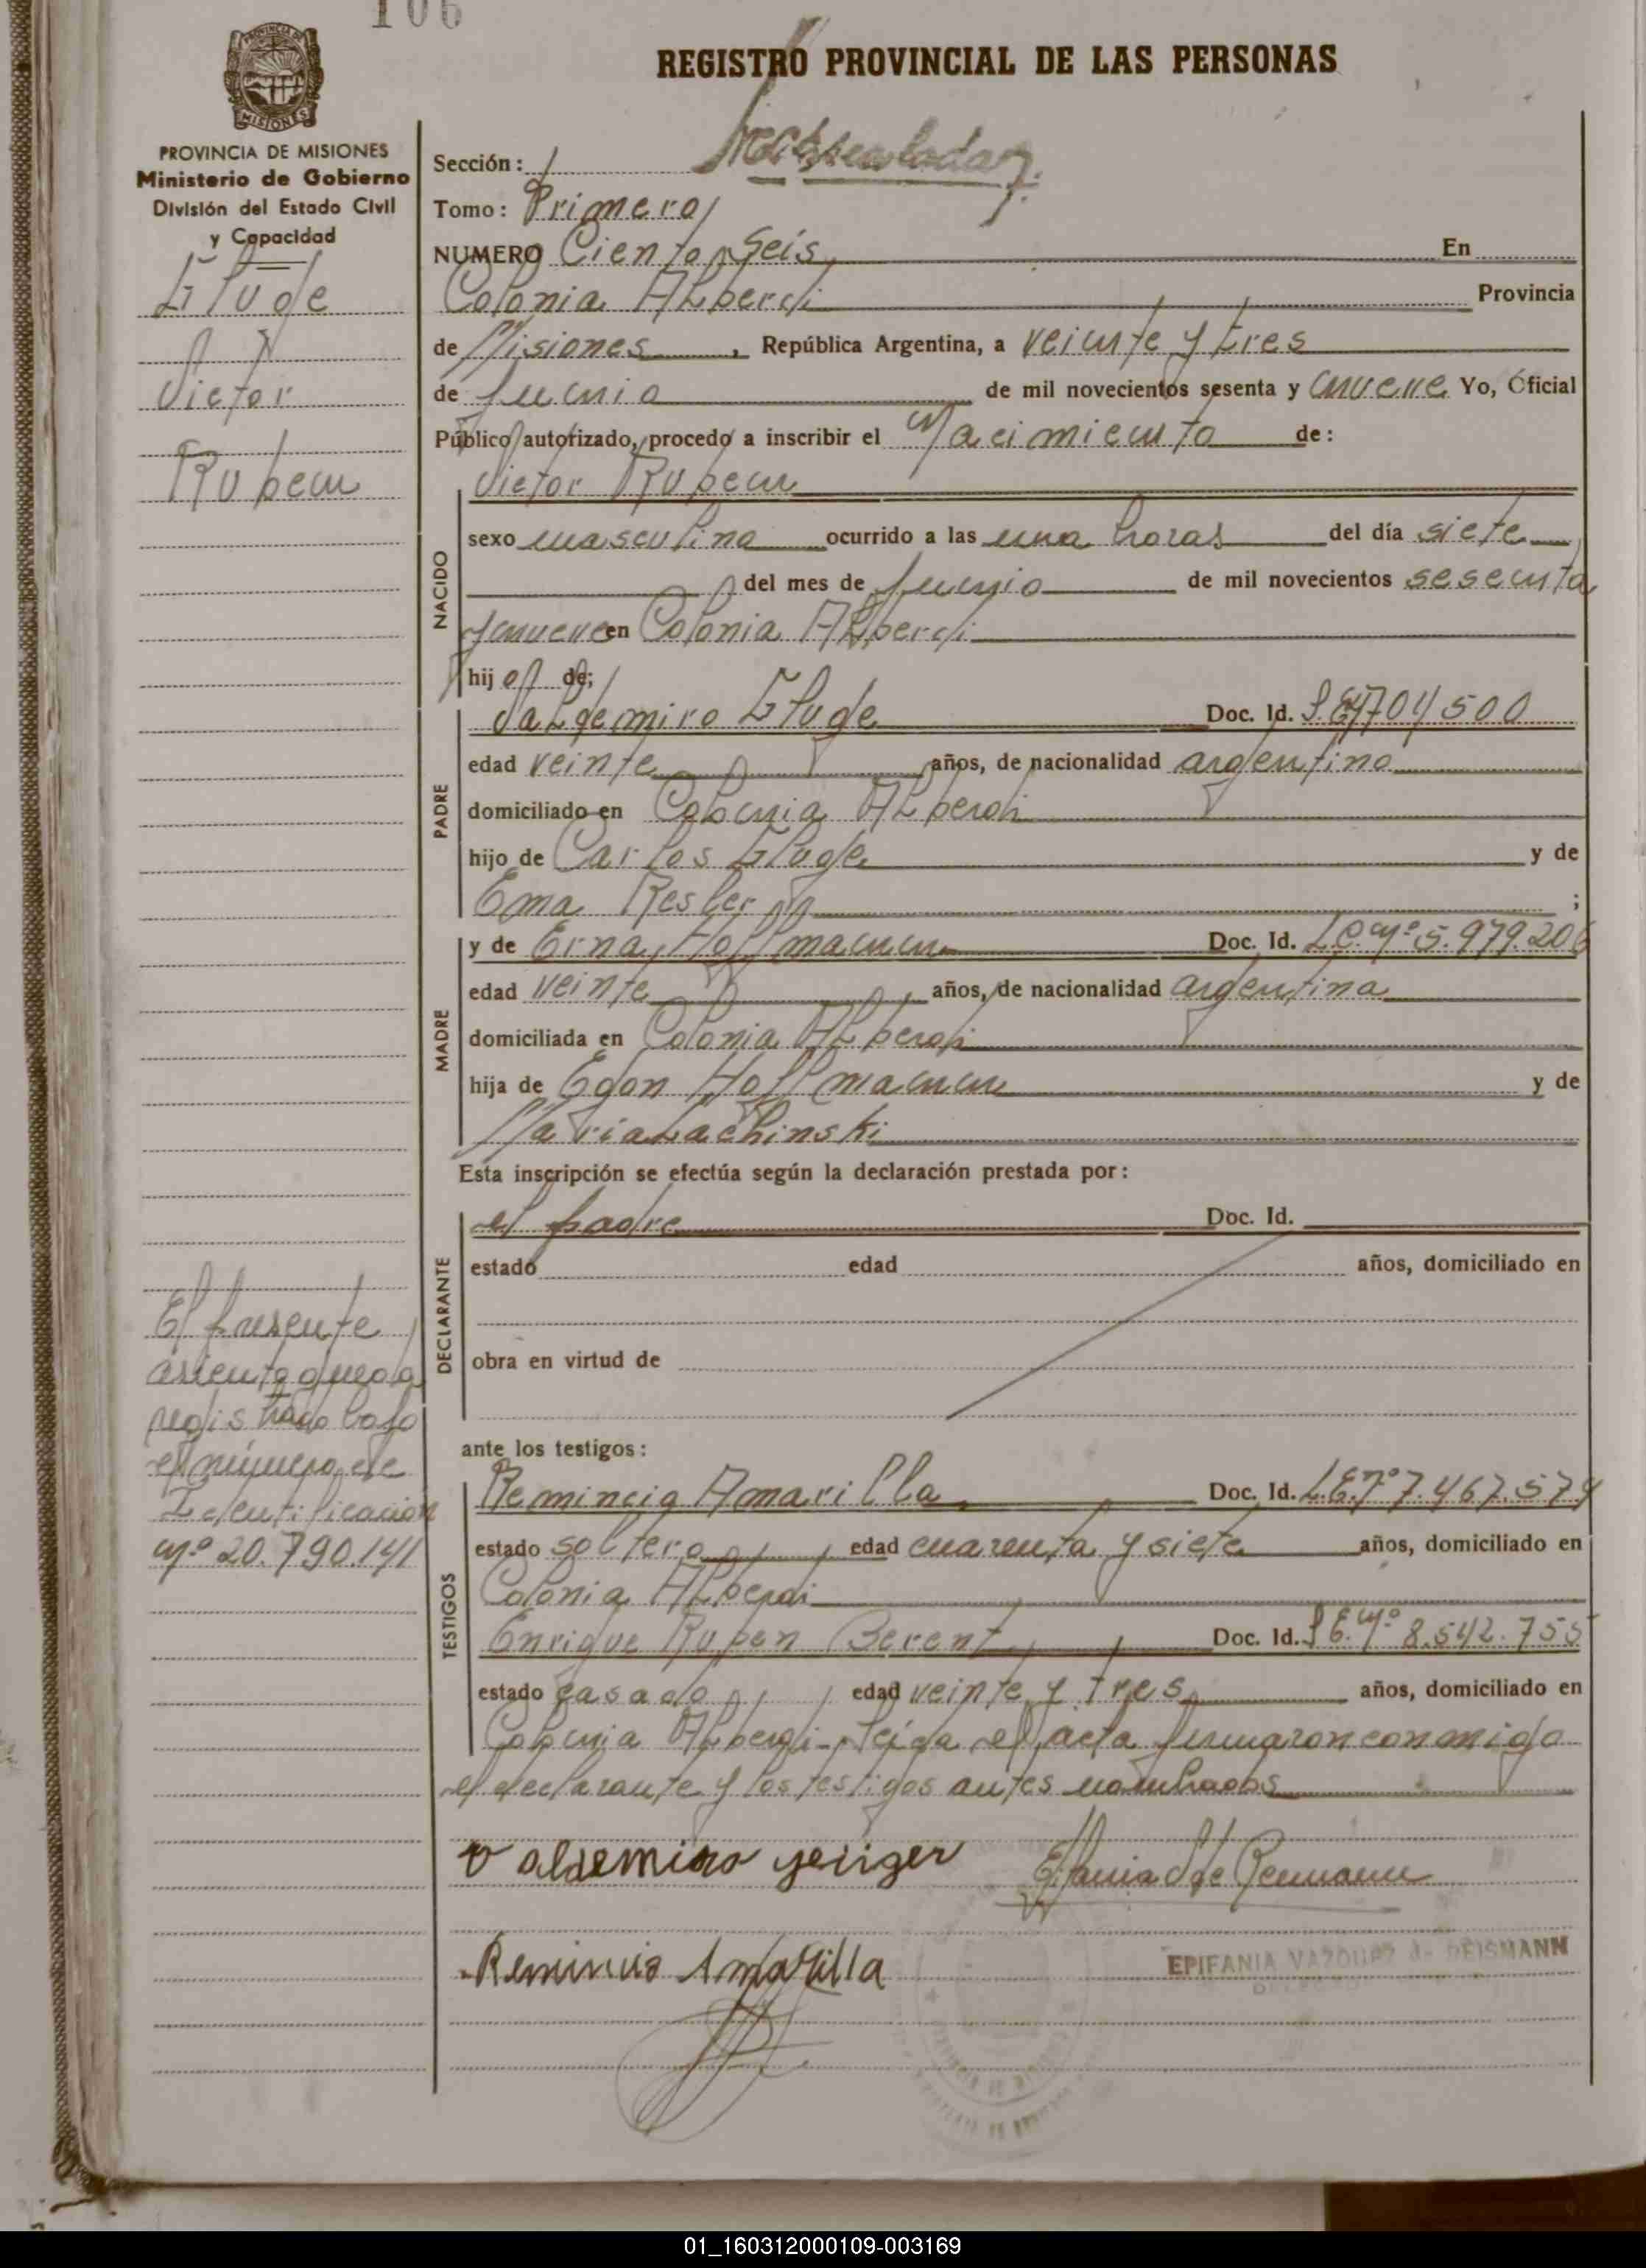 106
REGISTRO PROVINCIAL DE LAS PERSONAS
MISIONES
PROVINCIA DE MISIONES
Ministerio de Gobierno
División del Estado Civil
y Capacidad
Victor
Ruben
El presente
asiento queda
registrado bajo
el número de
Identificacion
nº 20.790.141
Sección:
Tomo: Primero
NUMERO Ciento Seis En
Colonia Alberdi Provincia
de Misiones, República Argentina, a veinte y tres
de Junio de mil novecientos sesenta y nueve Yo, Oficial
Público autorizado, procedo a inscribir el Nacimiento de:
NACIDO
Victor Ruben
sexo masculino ocurrido a las una horas del día siete
del mes de Junio de mil novecientos sesenta
y nueve en Colonia Alberdi
hijo de;
PADRE
Valdemiro Doc. Id.
edad veinte años, de nacionalidad argentino
domiciliado en Colonia Alberdi
hijo de Carlos y de
Ema Resler ;
MADRE
y de Erna Hoffmann Doc. Id. L.C. nº 5.979.206
edad veinte años, de nacionalidad argentina
domiciliada en Colonia Alberdi
hija de Egon Hoffmann y de
Maria Lachinski
Esta inscripción se efectúa según la declaración prestada por:
DECLARANTE
el padre Doc. Id.
estado edad años, domiciliado en
obra en virtud de
ante los testigos:
TESTIGOS
Remincia Amarilla Doc. Id. L.E. nº 7.467.574
estado soltero edad cuarenta y siete años, domiciliado en
Colonia Alberdi
Enrique Ruben Berent Doc. Id. L.E. nº 8.542.755
estado casado edad veinte y tres años, domiciliado en
Colonia Alberdi - Leída el acta firmaron conmigo
el declarante y los testigos antes nombrados
Remincio Amarilla
EPIFANIA VAZQUEZ de REISMANN
01_160312000109-003169